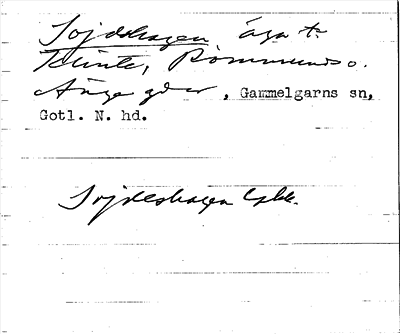 Sojdeshagen äga t.
Klinte, Rommunds o.
Änge gdar, Gammelgarns sn,
Gotl. N. hd.
Sojdeshagen